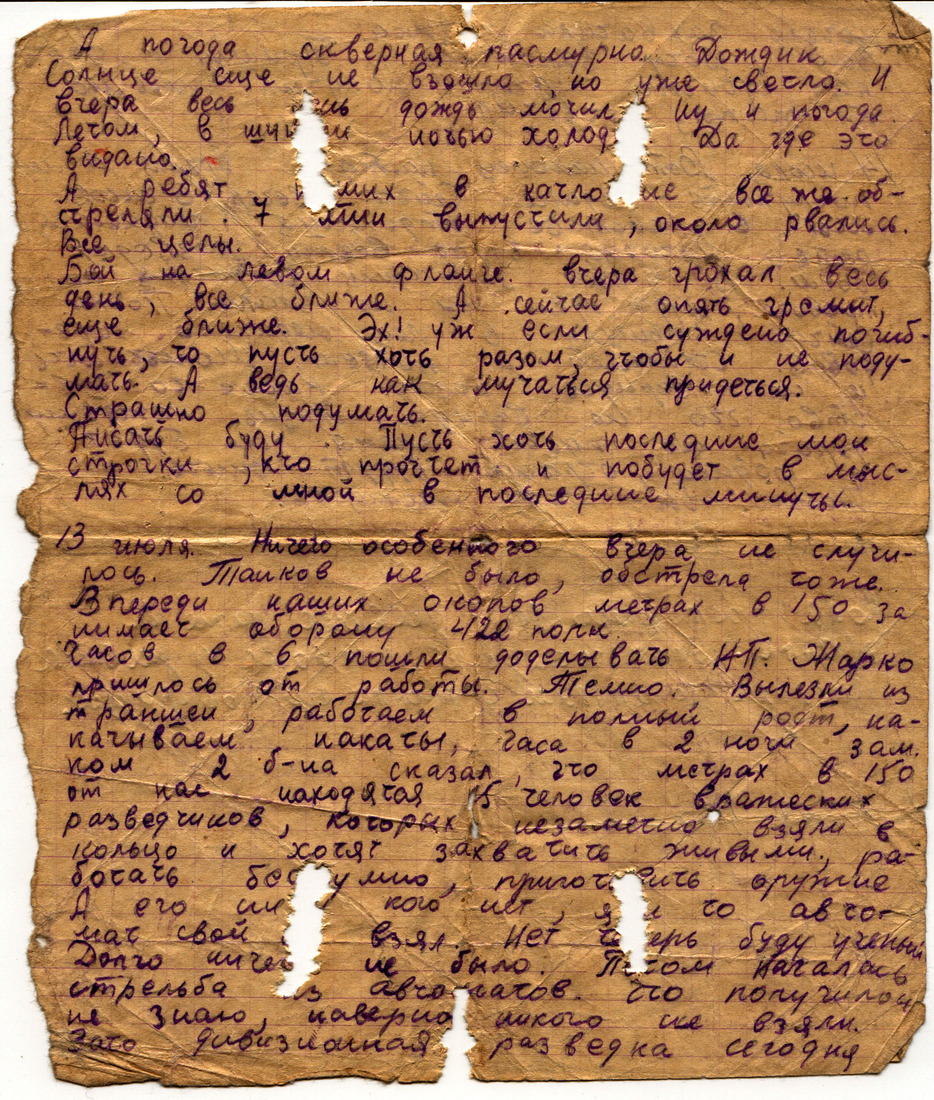 А погода скверная, пасмурно. Дождик.
Солнце еще не взошло, но уже светло. И
вчера весь дождь мочил. Ну и погода.
Летом, в ночью холод Да где это
видано.
А ребят в все же об-
стреляли. 7 выпустили, около рвались.
Все целы.
Бой на левом фланге. вчера грохал весь
день, все ближе. А сейчас опять гремит,
еще ближе. Эх! уж если суждено погиб-
нуть, то пусть хоть разом, чтобы и не поду-
мать. А ведь как мучаться придеться.
Страшно подумать.
Писать буду. Пусть хоть последние мои
строчки, кто прочтет и побудет в мыс-
лях со мной в последние минуты.
13 июля. Ничего особенного вчера не случи-
лось. Танков не было, обстрела тоже.
Впереди наших окопов метрах в 150 за
нимает оборону 422 полк.
Часов в 6 пошли доделывать НП. Жарко
пришлось от работы. Темно. Вылезли из
траншеи, работаем в полный рост, на-
катываем накаты, часа в 2 ночи зам.
ком 2 б-на сказал, что метрах в 150
от нас находятся 15 человек вражеских
разведчиков, которых незаметно взяли в
кольцо и хотят захватить живыми, ра-
ботать бесшумно, приготовить оружие
А его нет, авто-
мат свой взял. Нет теперь буду ученый
Долго ничего не было. Потом началась
стрельба из автоматов. Что получилось
не знаю, наверно никого не взяли.
Зато дивизионная разведка сегодня